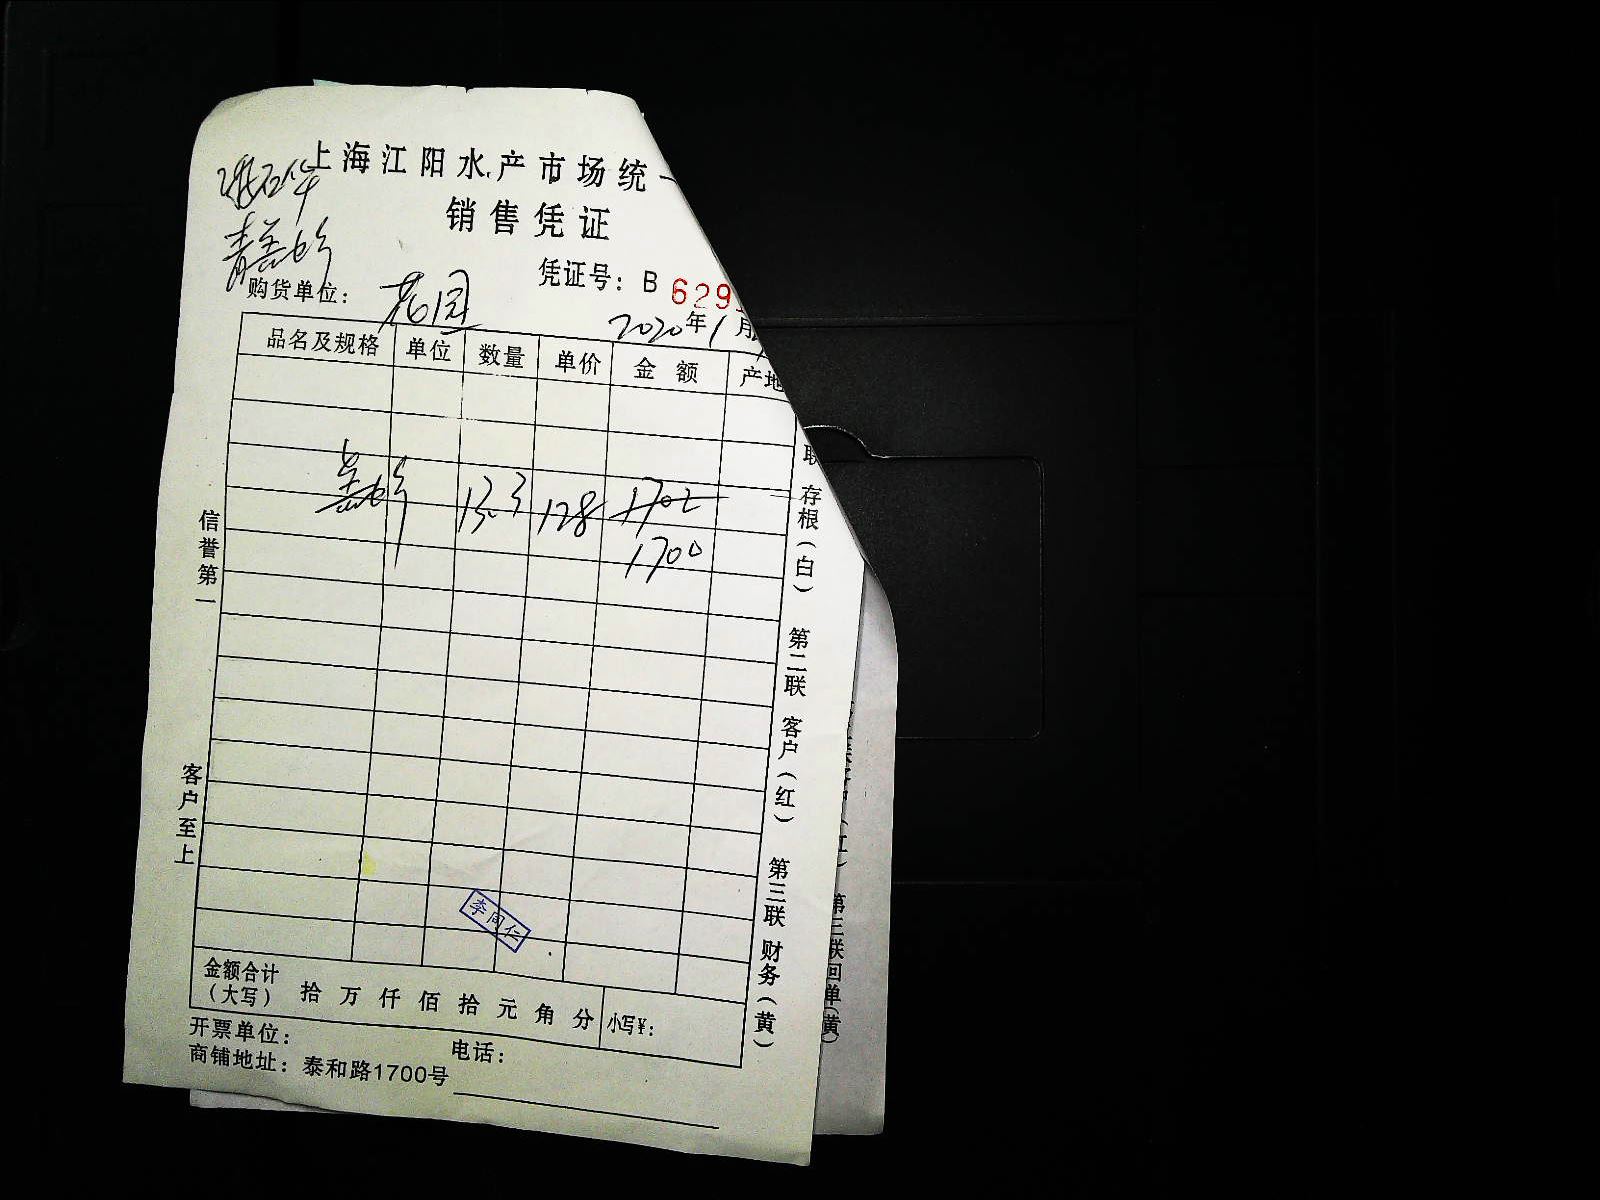 上海江阳水产市场统一
销售凭证
凭证号：B 629
购货单位： 花园
2020年1月
品名及规格 单位 数量 单价 金额 产地
13.3 128 1702
1700
信誉第一
客户至上
联 存根（白） 第二联 客户（红） 第三联 财务（黄）
第三联回单（黄）
李同仁
金额合计
（大写） 拾 万 仟 佰 拾 元 角 分 小写¥：
开票单位： 电话：
商铺地址：泰和路1700号